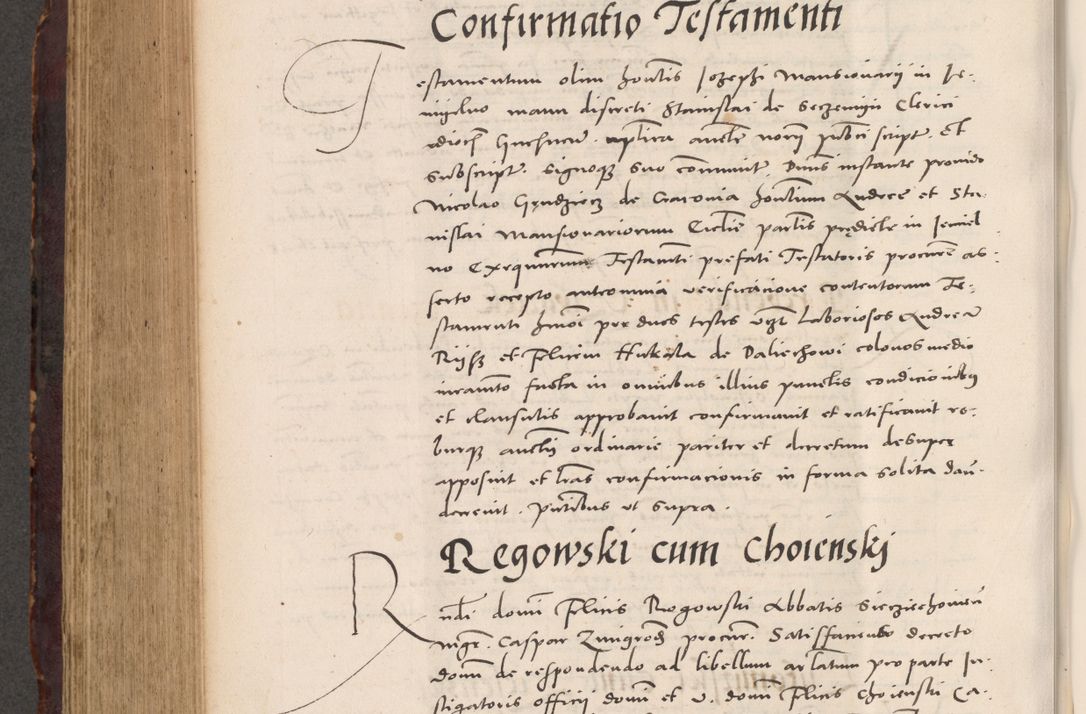 Confirmatio Testamenti
Testamentum olim honestis Jozephi Mansionarij in Je-
mijelno manu discreti Stanislai de Seczemijn Clerici
dioc Gneznen aplica aucte norij publici script. Et
Subscript. Signoq suo communit. Dnus instante provido
Nicolao Gendziorz de Cracovia hontium Andree et Sta-
nislai Mansionariorum Ecclie parlis predicte in Jemiel-
no Exequutorum Testamti prefati Testatoris procure as-
serto recepto anteomnia verificacione contentorum Te-
stamenti hmoi per duos testes vizt Laboriosos Andrea
Rijsz et Felicem Hukala de Daliechowi colonos medio
iuramto facta in omnibus illius punctis condicionibus
et clausulis approbavit confirmavit et ratificavit ro-
burque auctis ordinarie pariter et decretum desuper
apposuit et lras confirmacionis in forma solita dan-
decrevit. Pntibus ut supra.
Regowski cum Choienskj
Rndi domi Felicis Rogowski Abbatis Sieciechovien
mgr. Caspar Zmigrod procur. Satisfaciendo decreto
domi de respondendo ad libellum arlatum pro parte In-
stigatoris officij domi et V. domi Felicis Choienski Ca-